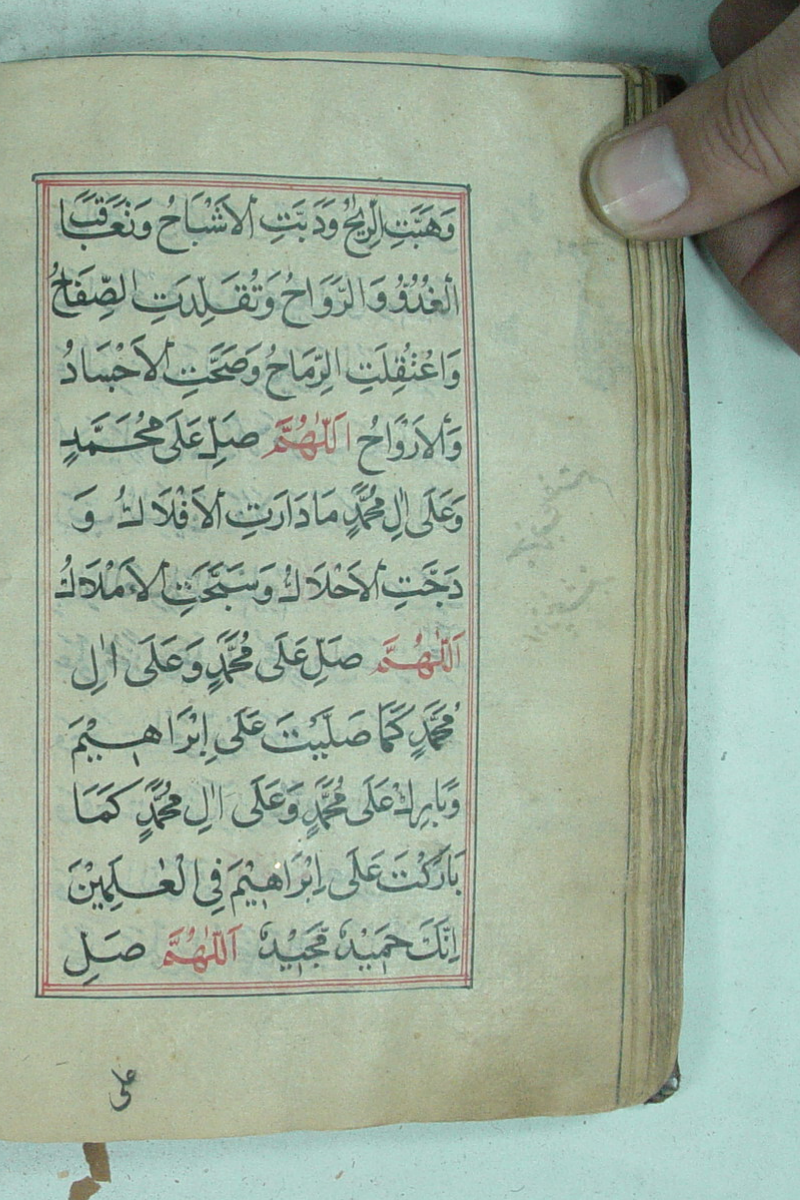 وَهَبَّتِ الرِّيحُ وَدَبَّتِ الْأَشْبَاحُ وَتَعَاقَبَ
الْغُدُوُّ وَالرَّوَاحُ وَتُقَلِّدَتِ الصِّفَاحُ
وَاعْتُقِلَتِ الرِّمَاحُ وَصَحَّتِ الْأَجْسَادُ
وَالْأَرْوَاحُ اَللّٰهُمَّ صَلِّ عَلَى مُحَمَّدٍ
وَعَلَى اٰلِ مُحَمَّدٍ مَا دَارَتِ الْأَفْلَاكُ وَ
دَجَتِ الْأَحْلَاكُ وَسَبَّحَتِ الْأَمْلَاكُ
اَللّٰهُمَّ صَلِّ عَلَى مُحَمَّدٍ وَعَلَى اٰلِ
مُحَمَّدٍ كَمَا صَلَّيْتَ عَلَى اِبْرَاهِيْمَ
وَبَارِكْ عَلَى مُحَمَّدٍ وَعَلَى اٰلِ مُحَمَّدٍ كَمَا
بَارَكْتَ عَلَى اِبْرَاهِيْمَ فِي الْعٰلَمِيْنَ
اِنَّكَ حَمِيْدٌ مَّجِيْدٌ اَللّٰهُمَّ صَلِّ
على